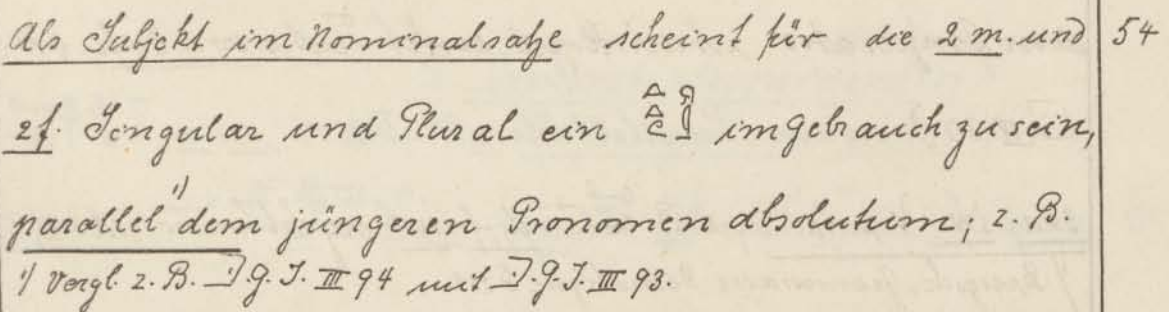 Als Subjekt im Nominalsatze scheint für die 2 m. und 54
2 f. Singular und Plural ein im Gebrauch zu sein,
parallel ¹) dem jüngeren Pronomen absolutum; z. B.
¹) Vergl. z. B. G. J. III 94 mit G. J. III 93.